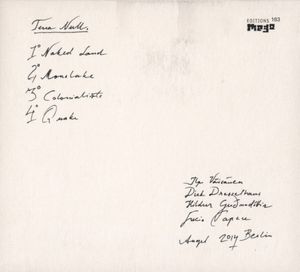 Terra Null.
EDITIONS 183
mego
1° Naked Land
2° Monolake
3° Colonialists
4° Quake
Ilpo Väisänen
Dirk Dresselhaus
Hildur Guðnadóttir
Lucio Capece
Angel 2014 Berlin